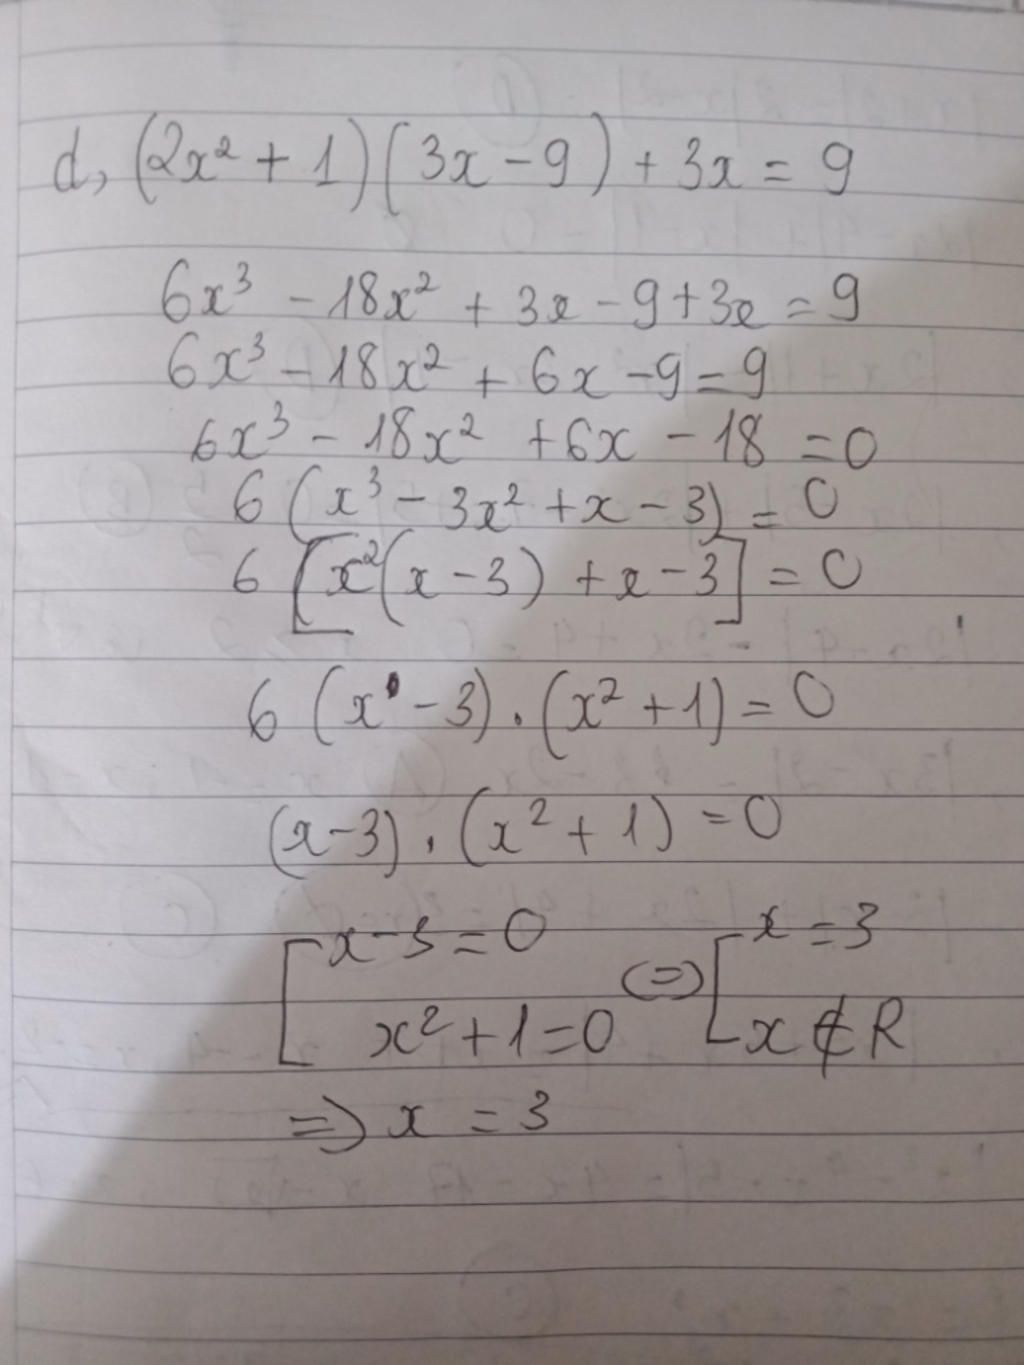 d, (2x² + 1)(3x - 9) + 3x = 9
6x³ - 18x² + 3x - 9 + 3x = 9
6x³ - 18x² + 6x - 9 = 9
6x³ - 18x² + 6x - 18 = 0
6 (x³ - 3x² + x - 3) = 0
6 [x²(x - 3) + x - 3] = 0
6 (x - 3) . (x² + 1) = 0
(x - 3) . (x² + 1) = 0
[ x - 3 = 0 (=) [ x = 3
x² + 1 = 0 x ∉ R
=> x = 3